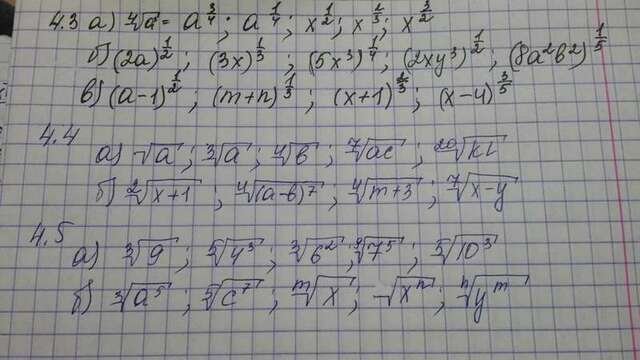 4.3 а) ∜a = a^(3/4); a^(1/4); x^(1/2); x^(1/3); x^(3/2)
б) (2a)^(1/2); (3x)^(1/3); (5x³)^(1/4); (2xy³)^(1/2); (8a²b²)^(1/5)
в) (a-1)^(1/2); (m+n)^(1/3); (x+1)^(1/3); (x-4)^(3/5)
4.4
а) √a; ∛a; ∜b; ⁷√ac; ²⁰√kl
б) ²√x+1; ∜(a-b)⁷; ∜m+3; ⁷√x-y
4.5
а) ∛9; ⁵√4³; ∛6²; ⁹√7⁵; ⁵√10³
б) ∛a⁵; ⁵√c⁷; ᵐ√x; √xⁿ; ⁿ√yᵐ